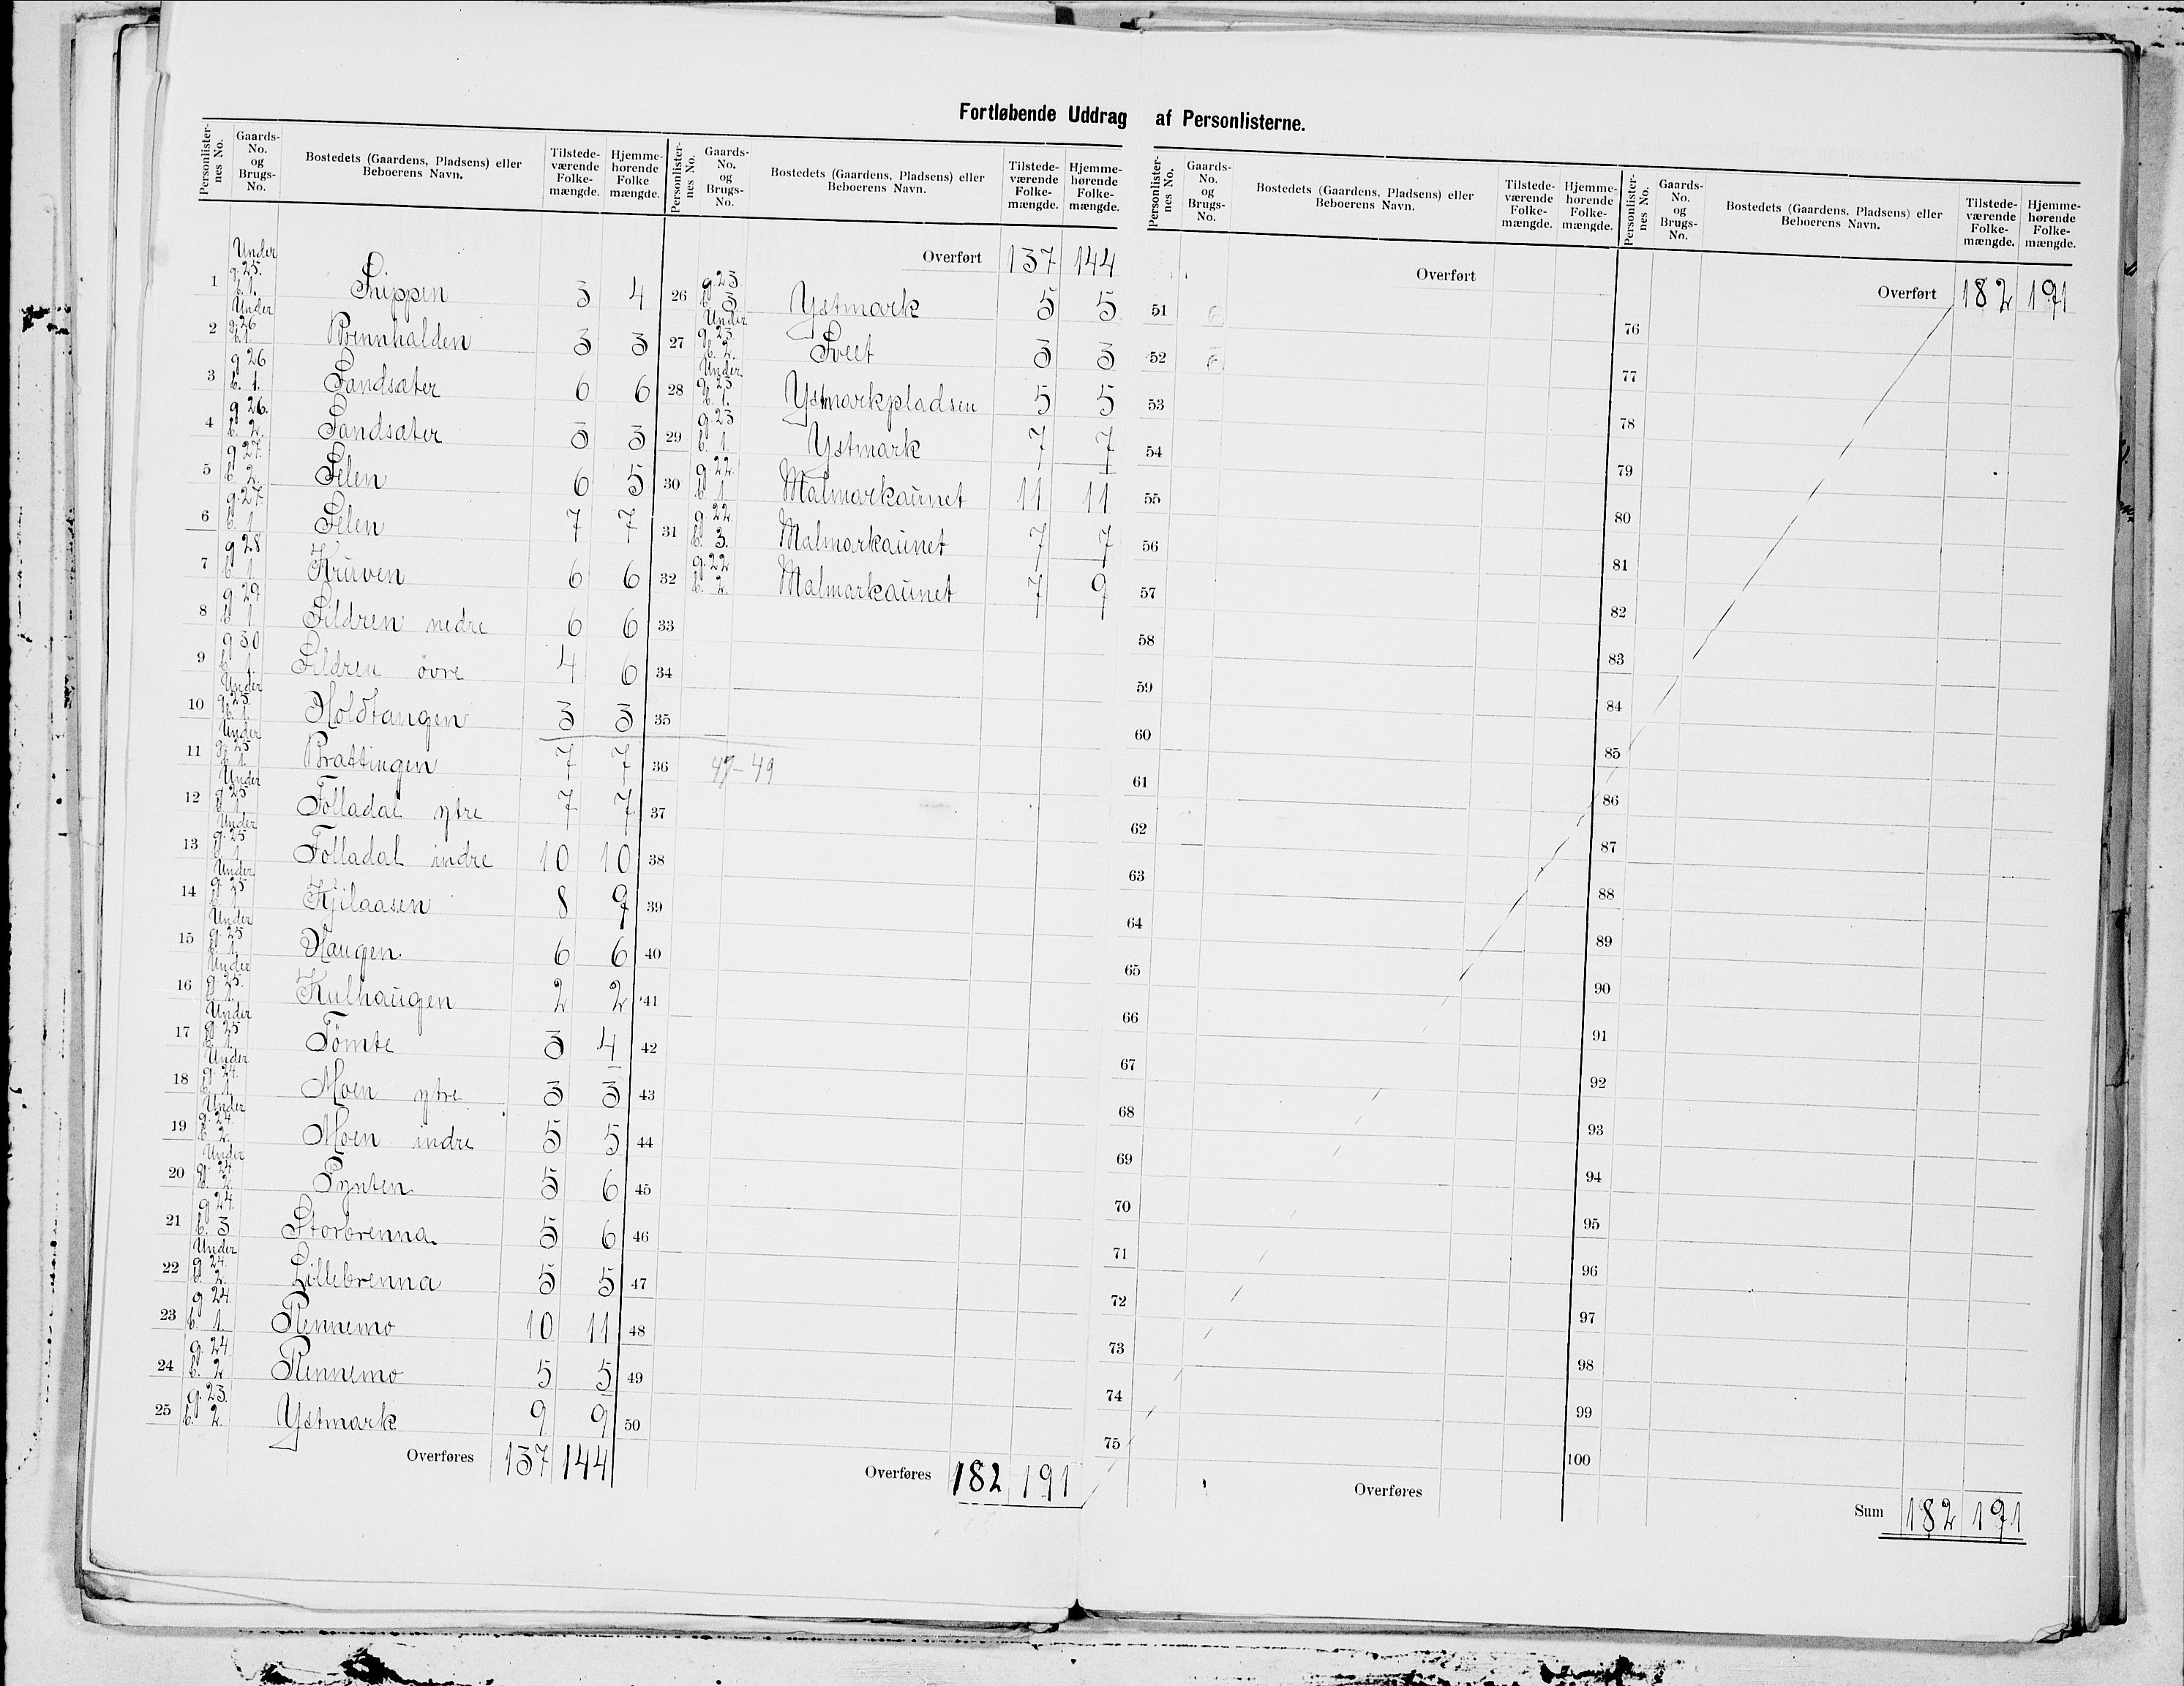 Fortløbende Uddrag af Personlisterne.
Personlister-nes No. Gaards-No. og Brugs-No. Bostedets (Gaardens, Pladsens) eller Beboerens Navn. Tilstede-værende Folke-mængde. Hjemme-hørende Folke mængde.
1 Under g. 25. b. 1. 3 4
2 Under g. 26 b. 1. Brennhalden 3 3
3 g 26 b. 1. Sandsæter 6 6
4 g 26. b. 2. Sandsæter 3 3
5 g 27. b. 2. Selen 6 5
6 g. 27. b. 1 Selen 7 7
7 g 28 b. 1 Kruven 6 6
8 g. 29 b. 1 Sildren nedre 6 6
9 g 30 b. 1. Sildren øvre 4 6
10 Under g. 25. b. 1. Holdtangen 3 3
11 Under g. 25 b. 1. Brattingen 7 7
12 Under g. 25 b. 1 Folladal ytre 7 7
13 Under g. 25 b. 1 Folladal indre 10 10
14 Under g. 25 b. 1 Kjilaasen 8 9
15 Under g. 25 b. 1. Haugen 6 6
16 Under g. 25. b. 1. Kulhaugen 2 2
17 Under g. 25 b. 1. Tømte 3 4
18 Under g. 24. b. 1 Moen ytre 3 3
19 Under g. 24. b. 2. Moen indre 5 5
20 Under g. 24. b. 2. Pynten 5 6
21 g 24. b. 3 Storbrenna 5 6
22 Under g 24. b. 2. Lillebrenna 5 5
23 g. 24. b. 1. Rennemo 10 11
24 g. 24 b. 2 Rennemo 5 5
25 g. 23. b. 2. Ystmark 9 9
Overføres 137 144
Personlister-nes No. Gaards-No. og Brugs-No. Bostedets (Gaardens, Pladsens) eller Beboerens Navn. Tilstede-værende Folke-mængde. Hjemme-hørende Folke-mængde.
Overført 137 144
26 g. 23. b. 3 Ystmark 5 5
27 Under g. 23 b. 2. Sveet 3 3
28 Under g. 23 b. 1. Ystmarkpladsen 5 5
29 g. 23 b. 1 Ystmark 7 7
30 g. 22. b. 1 Malmarkaunet 11 11
31 g. 22. b. 3. Malmarkaunet 7 7
32 g. 22 b. 2. Malmarkaunet 7 9
33
34
35
36 47-49
37
38
39
40
41
42
43
44
45
46
47
48
49
50
Overføres 182 191
Personlister-nes No. Gaards-No. og Brugs-No. Bostedets (Gaardens, Pladsens) eller Beboerens Navn. Tilstede-værende Folke-mængde. Hjemme-hørende Folke-mængde.
Overført
51
52
53
54
55
56
57
58
59
60
61
62
63
64
65
66
67
68
69
70
71
72
73
74
75
Overføres
Personlister-nes No. Gaards-No. og Brugs-No. Bostedets (Gaardens, Pladsens) eller Beboerens Navn. Tilstede-værende Folke-mængde. Hjemme-hørende Folke-mængde.
Overført 182 191
76
77
78
79
80
81
82
83
84
85
86
87
88
89
90
91
92
93
94
95
96
97
98
99
100
Sum 182 191